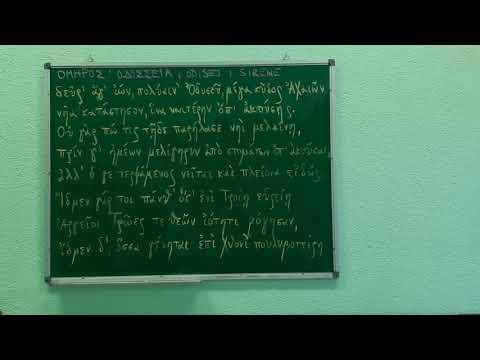 ΟΜΗΡΟΣ ΟΔΙΣΣΕΙΑ, ODISEJ I SIRENE
δεῦρ' ἄγ' ἰών, πολύαιν' Ὀδυσεῦ, μέγα κῦδος Ἀχαιῶν
νῆα κατάστησον, ἵνα νωιτέρην ὄπ' ἀκούσῃς.
Οὐ γάρ πώ τις τῇδε παρήλασε νηὶ μελαίνῃ,
πρίν γ' ἡμέων μελίγηρυν ἀπὸ στομάτων ὄπ' ἀκοῦσαι,
ἀλλ' ὅ γε τερψάμενος νεῖται καὶ πλείονα εἰδώς.
Ἴδμεν γάρ τοι πάνθ' ὅσ' ἐνὶ Τροίῃ εὐρείῃ
Ἀργεῖοι Τρῶές τε θεῶν ἰότητι μόγησαν,
ἴδμεν δ', ὅσσα γένηται ἐπὶ χθονὶ πουλυβοτείρῃ